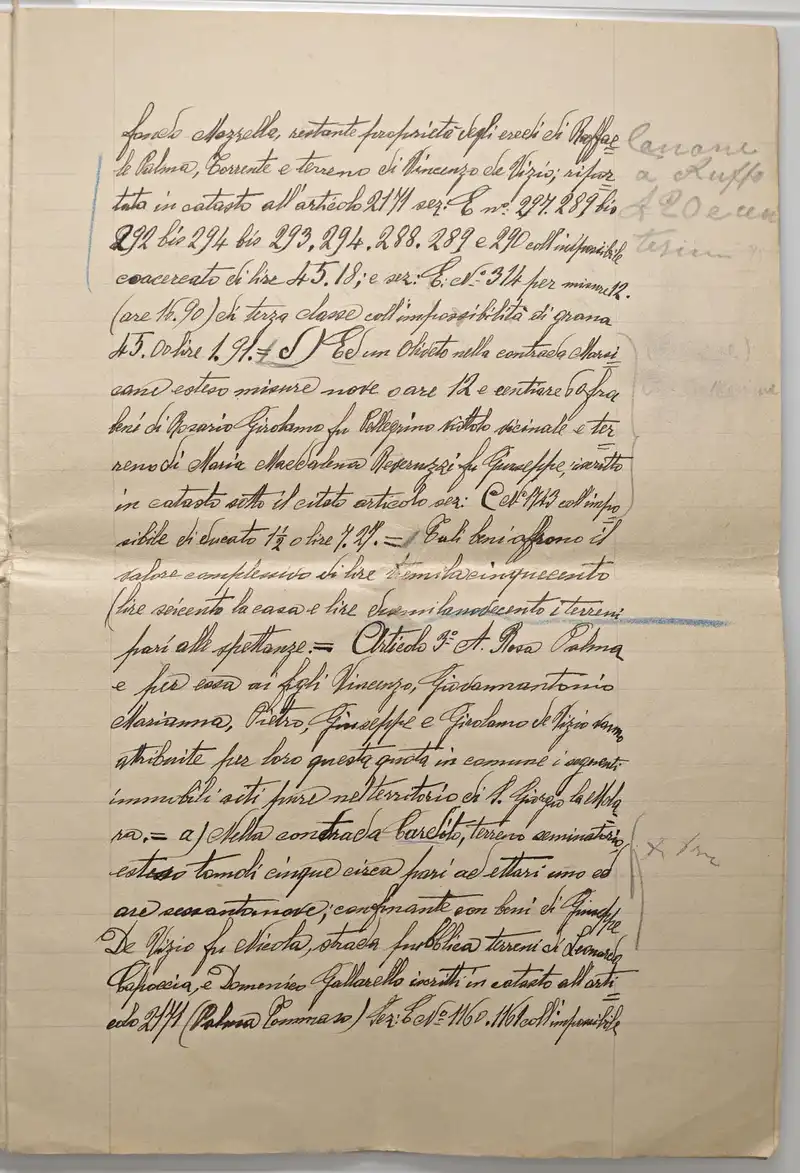 fondo Mazzella, restante proprietà degli eredi di Raffae=
le Palma, Torrente e terreno di Vincenzo de Vizio; ripor=
tata in catasto all'articolo 2171 sez: E nº: 297. 289 bis
292 bis 294 bis 293. 294. 288. 289 e 290 coll'imponibile
coacervato di lire 45.18; e sez: E: Nº 314 per misure 12.
(are 16.90) di terza classe coll'impossibilità di grana
45.00 lire 1.91.= d) Ed un Oliveto nella contrada Marsi=
cani esteso misure nove o are 12 e centiare 60 fra
beni di Rosario Girolamo fu Pellegrino viottolo vicinale e ter=
reno di Maria Maddalena fu Giuseppe, iscritto
in catasto sotto il citato articolo sez: C Nº 1743 coll'impo=
nibile di ducato 1½ o lire 7.27.= Tali beni offrono il
valore complessivo di lire tremilacinquecento
(lire seicento la casa e lire duemilanovecento i terreni
pari alle spettanze.= Articolo 3º A. Rosa Palma
e per essa ai figli Vincenzo, Giovannantonio
Marianna, Pietro, Giuseppe e Girolamo de Vizio vanno
attribuite per loro questa quota in comune i seguenti
immobili siti pure nel territorio di S. Giorgio la Mola=
ra.= a) Nella contrada Cardito, terreno seminatorio,
esteso tomoli cinque circa pari ad ettari uno ed
are sessantanove; confinante con beni di Giuseppe
De Vizio fu Nicola, strada pubblica terreni di Leonarda
Capoccia, e Domenico Gallarello iscritti in catasto all'arti=
colo 2171 (Palma Tommaso) Sez: E Nº 1160. 1161 coll'imponibile
Canone
a Ruffo
£ 20 e cen
tesimi